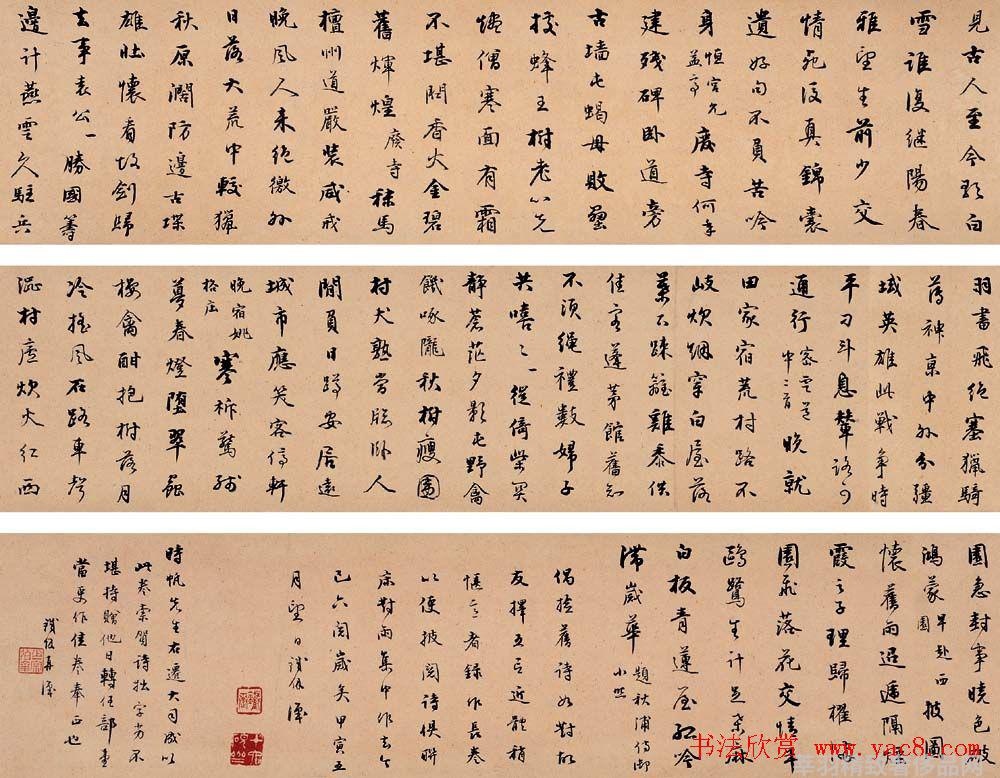 見古人至今歌白
雪誰復繼陽春
雅望生前少交
情死後真錦囊
遺好句不負苦吟
身 恒寧先益亭 廢寺何年
建殘碑臥道旁
古墻屯蝎毋敗壁
挂蜂王樹老
爐僧寒面有霜
不堪問香火金碧
舊煇煌 廢寺 秣馬
檀州道嚴裝咸戒
晚風人來絕徼外
日落大荒中較獵
秋原濶防邊古堞
雄壯懷看故劍歸
去事袁公一 勝國籌
邊計燕雲久駐兵
羽書飛絕塞獵騎
薄神京中外分疆
域英雄此戰爭時
平刁斗息輦路可
通行 密雲道中二首 晚就
田家宿荒村路不
岐炊烟穿白屋落
葉下踈籬雞黍供
佳客蓬茅館舊知
不須繩禮數婦子
共嘻嘻一 從倚柴關
靜蒼茫夕影屯野禽
飢啄隴秋樹瘦圍
村犬熟當臨臥人
閒員日蹲安居遠
城市應笑客停軒
晚宿姚格庄 寒柝驚殘
夢春燈墮翠蟲
棲禽酣抱樹落月
冷搖風石路車聲
澀村廬炊火紅西
園急封事曉色破
鴻蒙 早赴西園 披圖
懷舊雨迢遞隔
霞之子理歸櫂
園飛落花交情半
鷗鷺生計足桑麻
白板青蓮屋孤吟
滯歲華 題秋浦侍御小照
偶撿舊詩如對故
友擇五言近體稍
愜意者錄作長卷
以便披閱詩俱聯
床對雨集中作去今
已六閱歲矣甲寅五
月望日鐵保識
時帆先生右遷大司成以
此卷索賀詩拙字劣不
堪持贈他日轉任部堂
當更作佳卷奉正也
鐵保再識
书法欣赏 www.yac8.com